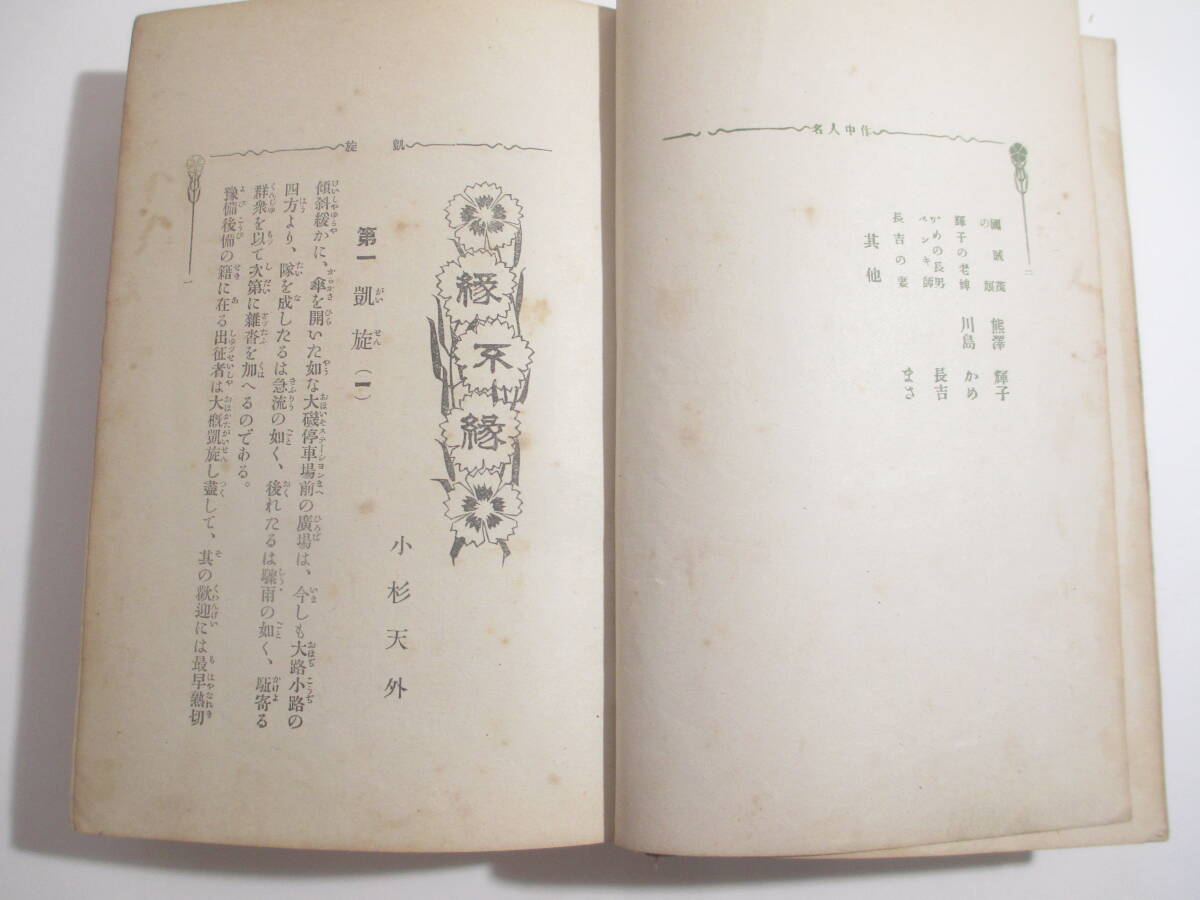 作中人名
二
國賊茂の類 熊澤 輝子
輝子の老婢 川島 かめ
かめの長男ペンキ師 長吉
長吉の妻 まさ
其他
凱旋
縁不縁
小杉天外
第一 凱旋(一)
傾斜緩かに、傘を開いた如な大磯停車場前の廣場は、今しも大路小路の
四方より、隊を成したるは急流の如く、後れたるは驟雨の如く、駈寄る
群衆を以て次第に雜沓を加へるのである。
豫備後備の籍に在る出征者は大概凱旋し盡して、其の歡迎には最早熱切
一